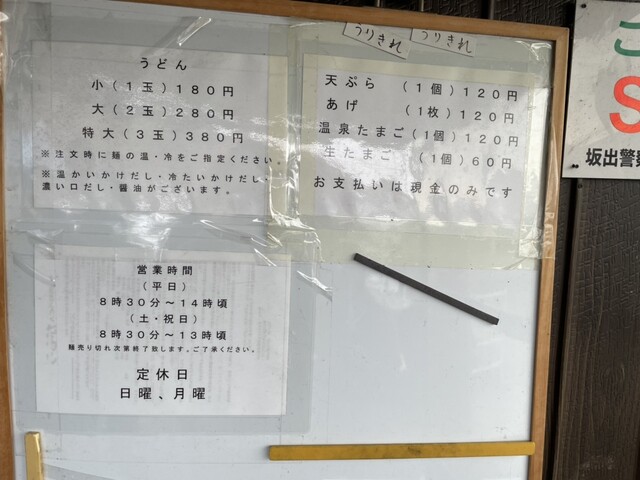 うりきれ
うりきれ
うどん
小(1玉)180円
大(2玉)280円
特大(3玉)380円
※注文時に麺の温・冷をご指定ください。
※温かいかけだし・冷たいかけだし・
濃い口だし・醤油がございます。
天ぷら (1個)120円
あげ (1枚)120円
温泉たまご(1個)120円
生たまご (1個)60円
お支払いは現金のみです
営業時間
(平日)
8時30分~14時頃
(土・祝日)
8時30分~13時頃
麺売り切れ次第終了致します。ご了承ください。
定休日
日曜、月曜
こ
S
坂出警察